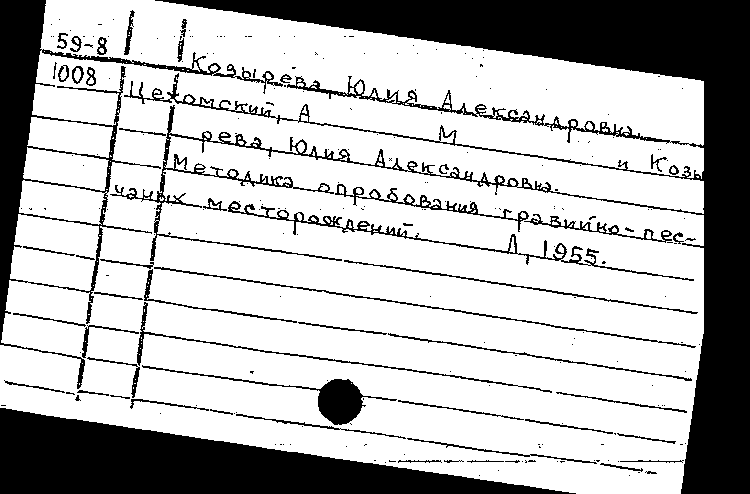 59-8
Козырева, Юлия Александровна.
1008
Цехомский, А М и Козы
рева, Юлия Александровна.
Методика опробования гравийно-пес-
чаных месторождений. Л, 1955.